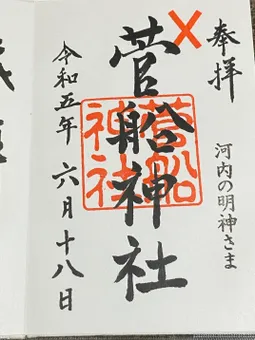 奉拝
河内の明神さま
菅船神社
菅船神社
令和五年 六月十八日